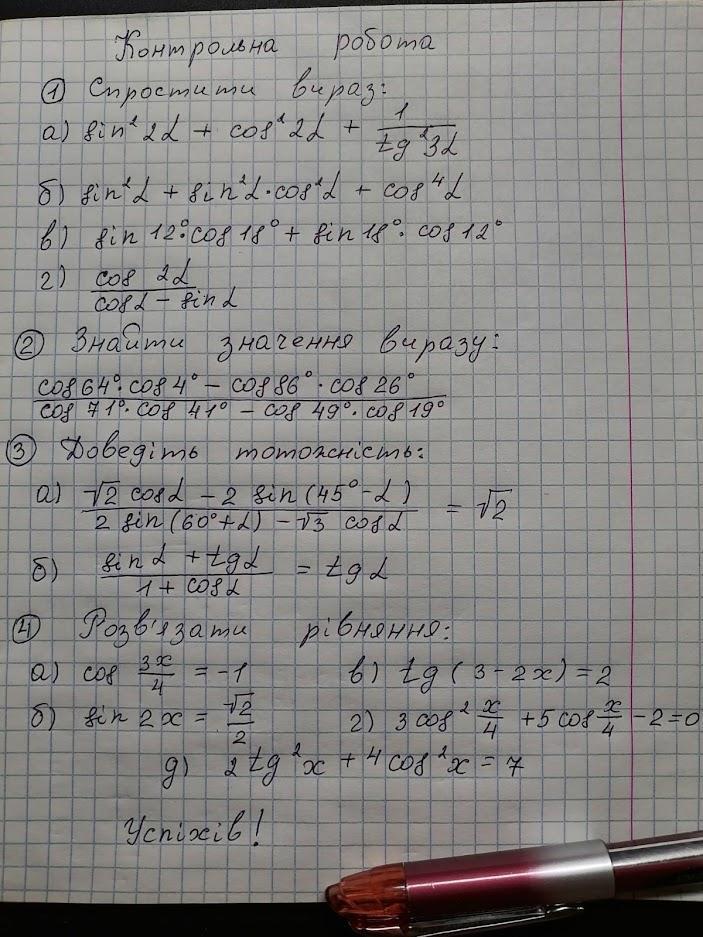 Контрольна робота
① Спростити вираз:
а) sin² 2α + cos² 2α + 1/tg² 3α
б) sin²α + sin²α · cos²α + cos⁴α
в) sin 12° · cos 18° + sin 18° · cos 12°
г) cos 2α / (cos α − sin α)
② Знайти значення виразу:
(cos 64° · cos 4° − cos 86° · cos 26°) / (cos 71° · cos 41° − cos 49° · cos 19°)
③ Доведіть тотожність:
а) (√2 cos α − 2 sin (45° − α)) / (2 sin (60° + α) − √3 cos α) = √2
б) (sin α + tg α) / (1 + cos α) = tg α
④ Розв'язати рівняння:
а) cos 3x/4 = −1 в) tg (3 − 2x) = 2
б) sin 2x = √2/2 г) 3 cos² x/4 + 5 cos x/4 − 2 = 0
д) 2 tg² x + 4 cos² x = 7
Успіхів!